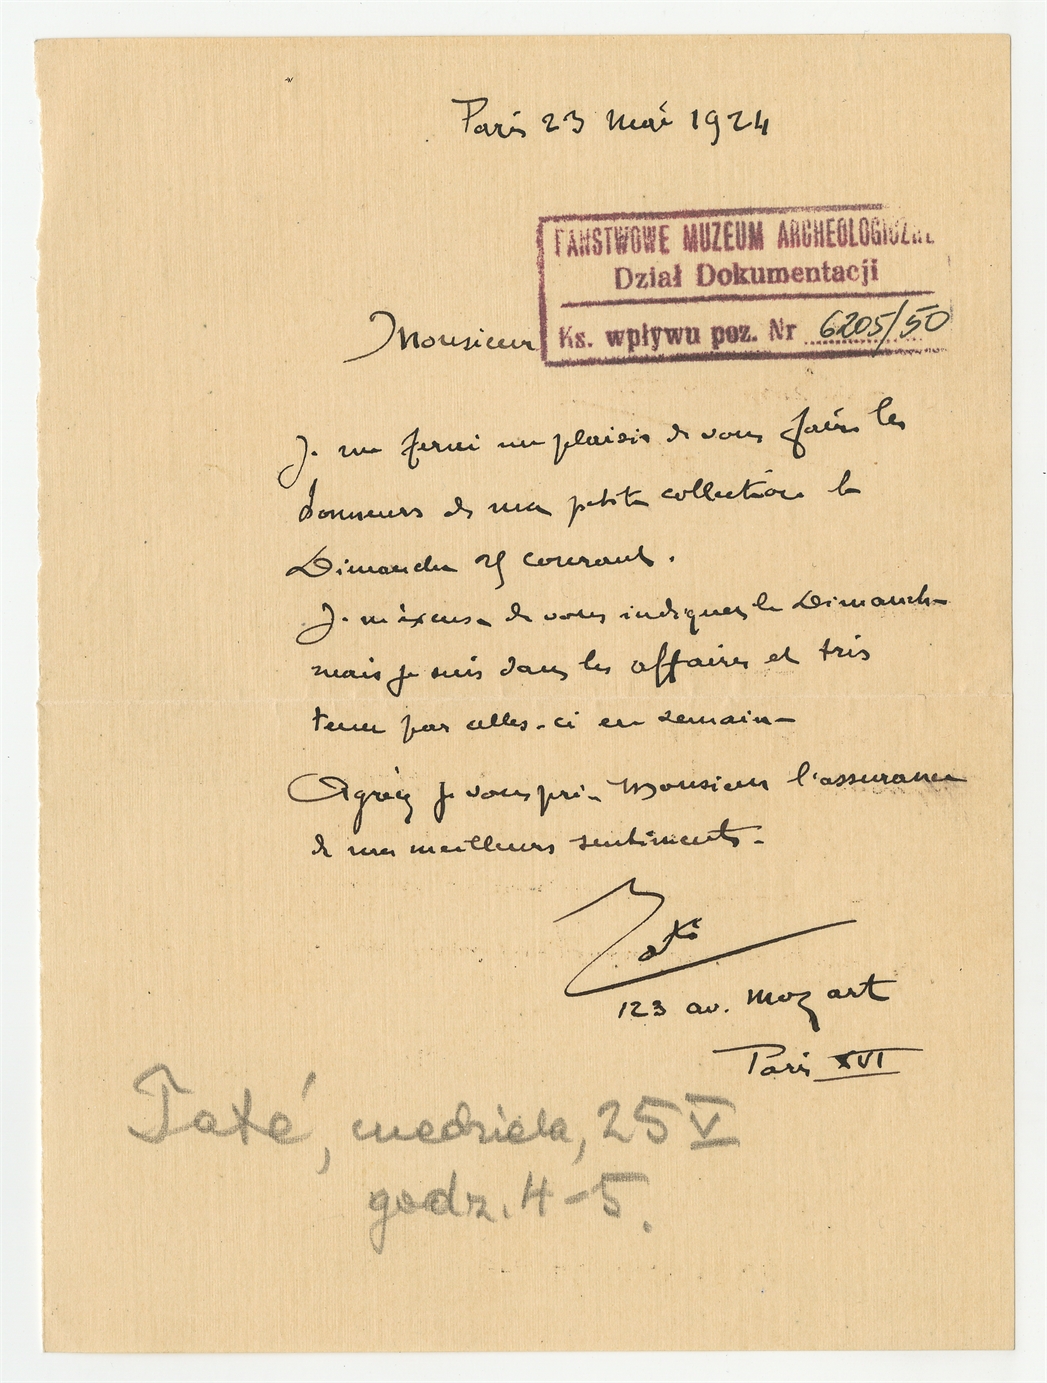 Paris 23 mai 1924
PAŃSTWOWE MUZEUM ARCHEOLOGICZNE
Dział Dokumentacji
Ks. wpływu poz. Nr 6205/50
Monsieur
Je me ferai un plaisir de vous faire les
honneurs de ma petite collection le
Dimanche 25 courant.
Je m'excuse de vous indiquer le Dimanche
mais je suis dans les affaires et très
tenu par celles-ci en semaine
Agréez je vous prie Monsieur l'assurance
de mes meilleurs sentiments.
Taté
123 av. Mozart
Paris XVI
Taté, niedziela, 25 V
godz. 4-5.